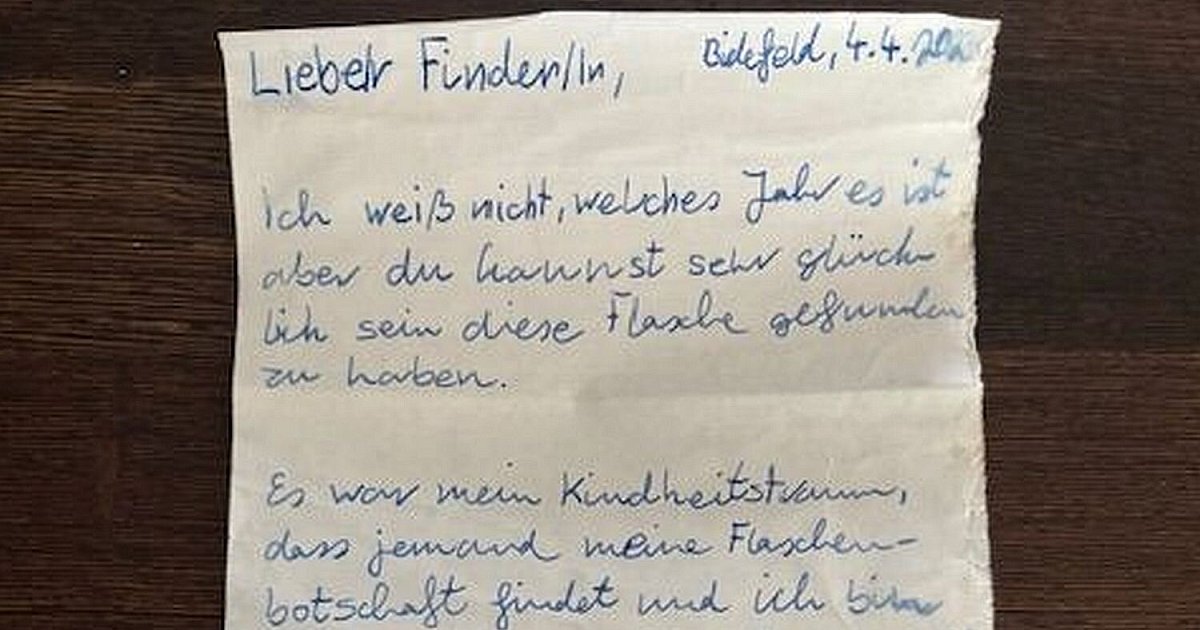 Lieber Finder/In, Bielefeld, 4.4.
Ich weiß nicht, welches Jahr es ist
aber du kannst sehr glück
lich sein diese Flasche gefunden
zu haben.
Es war mein Kindheitstraum,
dass jemand meine Flaschen-
botschaft findet und ich bin